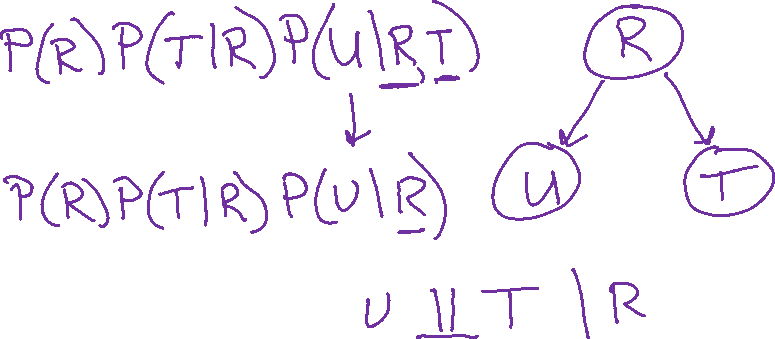 P(R)P(T|R)P(U|R,T)
R
P(R)P(T|R)P(U|R)
U
T
U ⫫ T | R